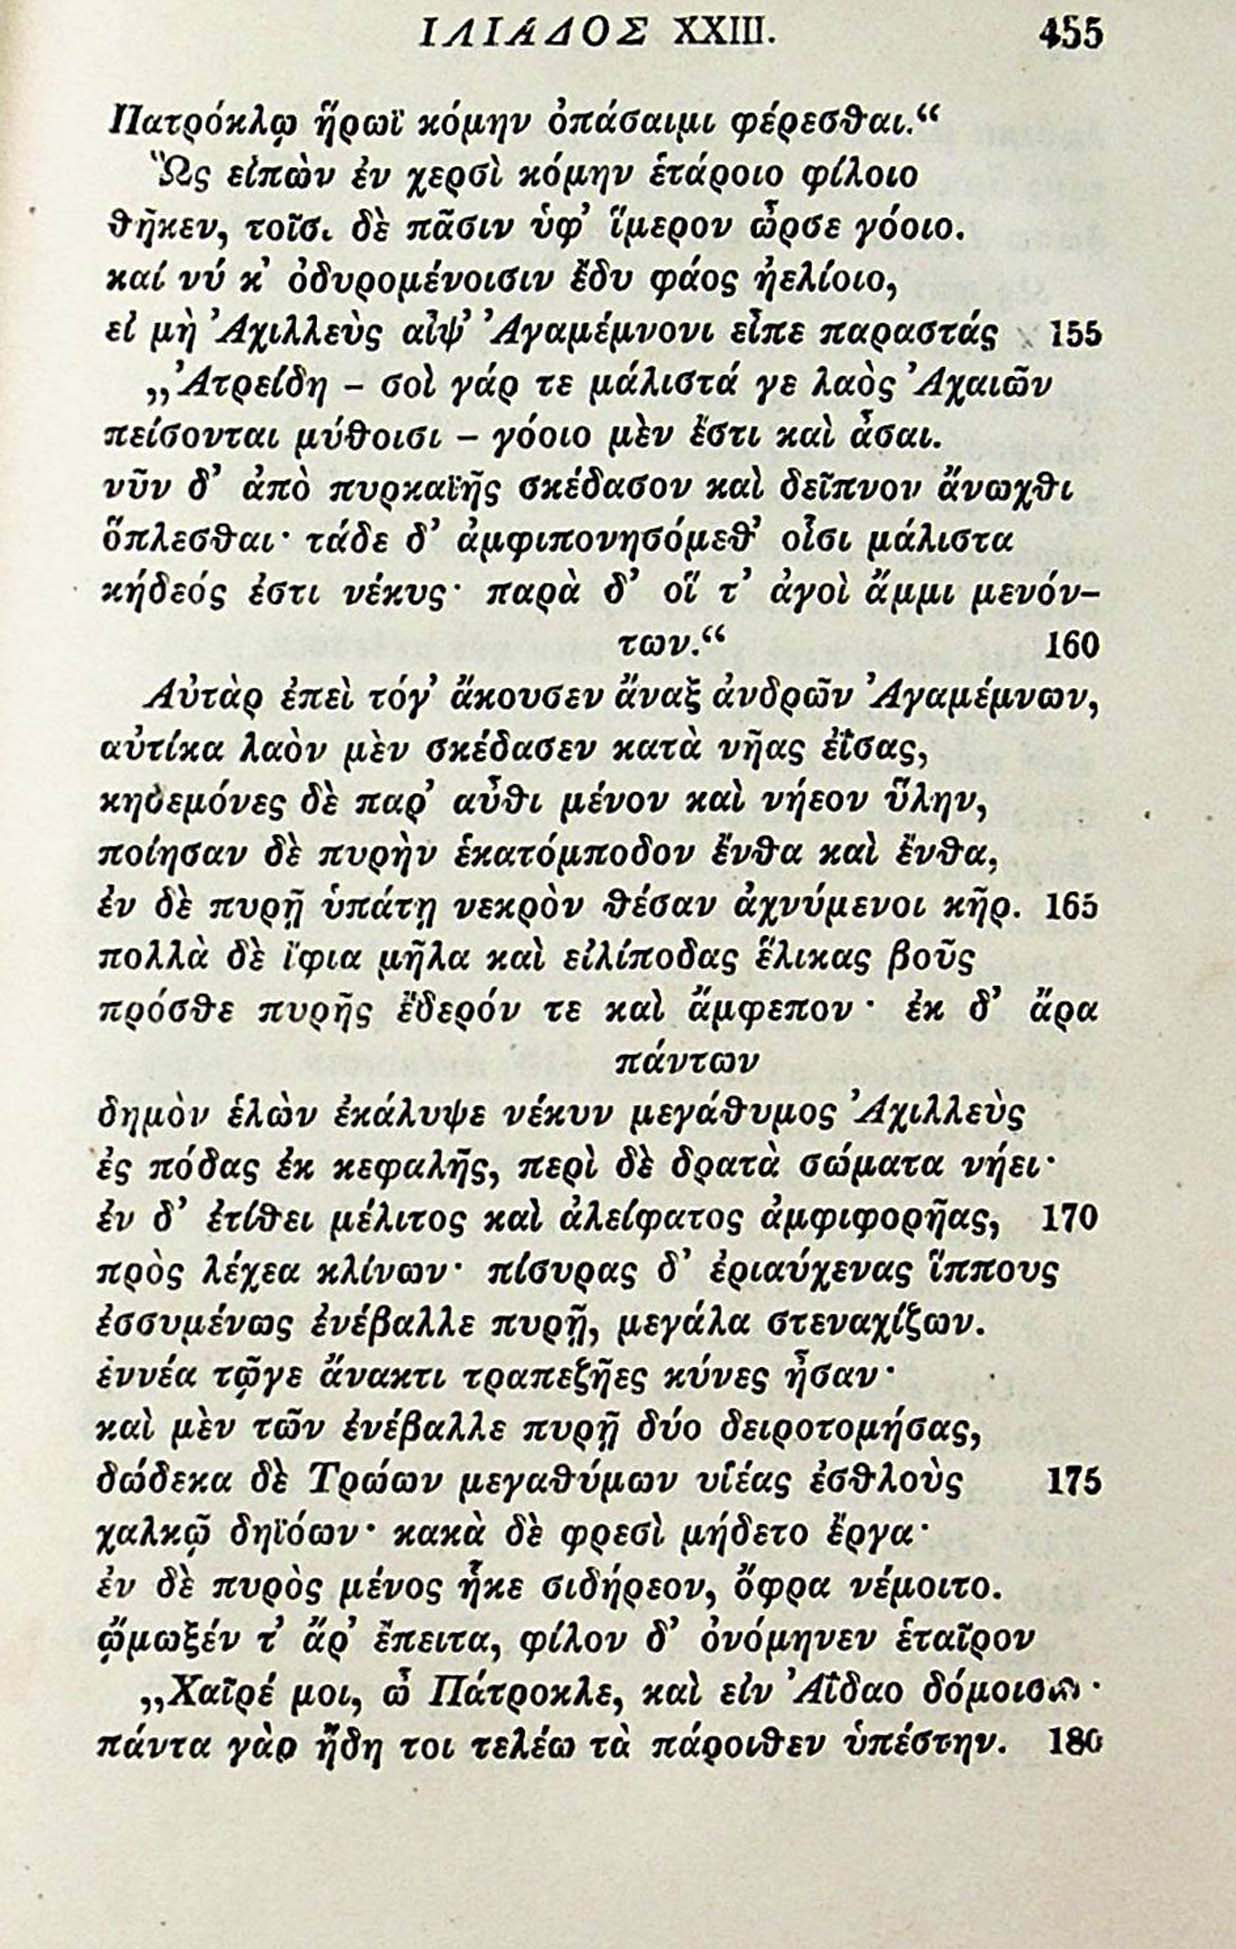 ΙΛΙΑΔΟΣ XXIII. 455
Πατρόκλῳ ἥρωϊ κόμην ὀπάσαιμι φέρεσθαι.“
Ὣς εἰπὼν ἐν χερσὶ κόμην ἑτάροιο φίλοιο
θῆκεν, τοῖσι δὲ πᾶσιν ὑφ’ ἵμερον ὦρσε γόοιο.
καί νύ κ’ ὀδυρομένοισιν ἔδυ φάος ἠελίοιο,
εἰ μὴ Ἀχιλλεὺς αἶψ’ Ἀγαμέμνονι εἶπε παραστάς 155
„Ἀτρείδη – σοὶ γάρ τε μάλιστά γε λαὸς Ἀχαιῶν
πείσονται μύθοισι – γόοιο μὲν ἔστι καὶ ἆσαι.
νῦν δ’ ἀπὸ πυρκαϊῆς σκέδασον καὶ δεῖπνον ἄνωχθι
ὅπλεσθαι· τάδε δ’ ἀμφιπονησόμεθ’ οἷσι μάλιστα
κήδεός ἐστι νέκυς· παρὰ δ’ οἵ τ’ ἀγοὶ ἄμμι μενόν-
των.“ 160
Αὐτὰρ ἐπεὶ τόγ’ ἄκουσεν ἄναξ ἀνδρῶν Ἀγαμέμνων,
αὐτίκα λαὸν μὲν σκέδασεν κατὰ νῆας ἐΐσας,
κηδεμόνες δὲ παρ’ αὖθι μένον καὶ νήεον ὕλην,
ποίησαν δὲ πυρὴν ἑκατόμποδον ἔνθα καὶ ἔνθα,
ἐν δὲ πυρῇ ὑπάτῃ νεκρὸν θέσαν ἀχνύμενοι κῆρ. 165
πολλὰ δὲ ἴφια μῆλα καὶ εἰλίποδας ἕλικας βοῦς
πρόσθε πυρῆς ἔδερόν τε καὶ ἄμφεπον· ἐκ δ’ ἄρα
πάντων
δημὸν ἑλὼν ἐκάλυψε νέκυν μεγάθυμος Ἀχιλλεὺς
ἐς πόδας ἐκ κεφαλῆς, περὶ δὲ δρατὰ σώματα νήει·
ἐν δ’ ἐτίθει μέλιτος καὶ ἀλείφατος ἀμφιφορῆας, 170
πρὸς λέχεα κλίνων· πίσυρας δ’ ἐριαύχενας ἵππους
ἐσσυμένως ἐνέβαλλε πυρῇ, μεγάλα στεναχίζων.
ἐννέα τῷγε ἄνακτι τραπεζῆες κύνες ἦσαν·
καὶ μὲν τῶν ἐνέβαλλε πυρῇ δύο δειροτομήσας,
δώδεκα δὲ Τρώων μεγαθύμων υἱέας ἐσθλοὺς 175
χαλκῷ δηϊόων· κακὰ δὲ φρεσὶ μήδετο ἔργα·
ἐν δὲ πυρὸς μένος ἧκε σιδήρεον, ὄφρα νέμοιτο.
ᾤμωξέν τ’ ἄρ’ ἔπειτα, φίλον δ’ ὀνόμηνεν ἑταῖρον
„Χαῖρέ μοι, ὦ Πάτροκλε, καὶ εἰν Ἀΐδαο δόμοισιν·
πάντα γὰρ ἤδη τοι τελέω τὰ πάροιθεν ὑπέστην. 180